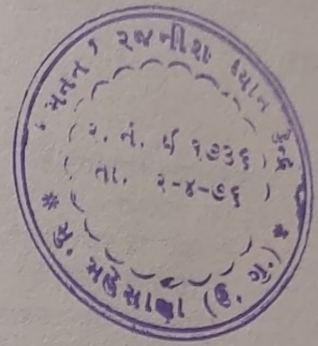 ' મનન ' રજનીશ ધ્યાન કેન્દ્ર
ર. નં. ઈ ૧૭૩૬
તા. ૨-૪-૭૬
* મુ. મહેસાણા (ઉ. ગુ.) *